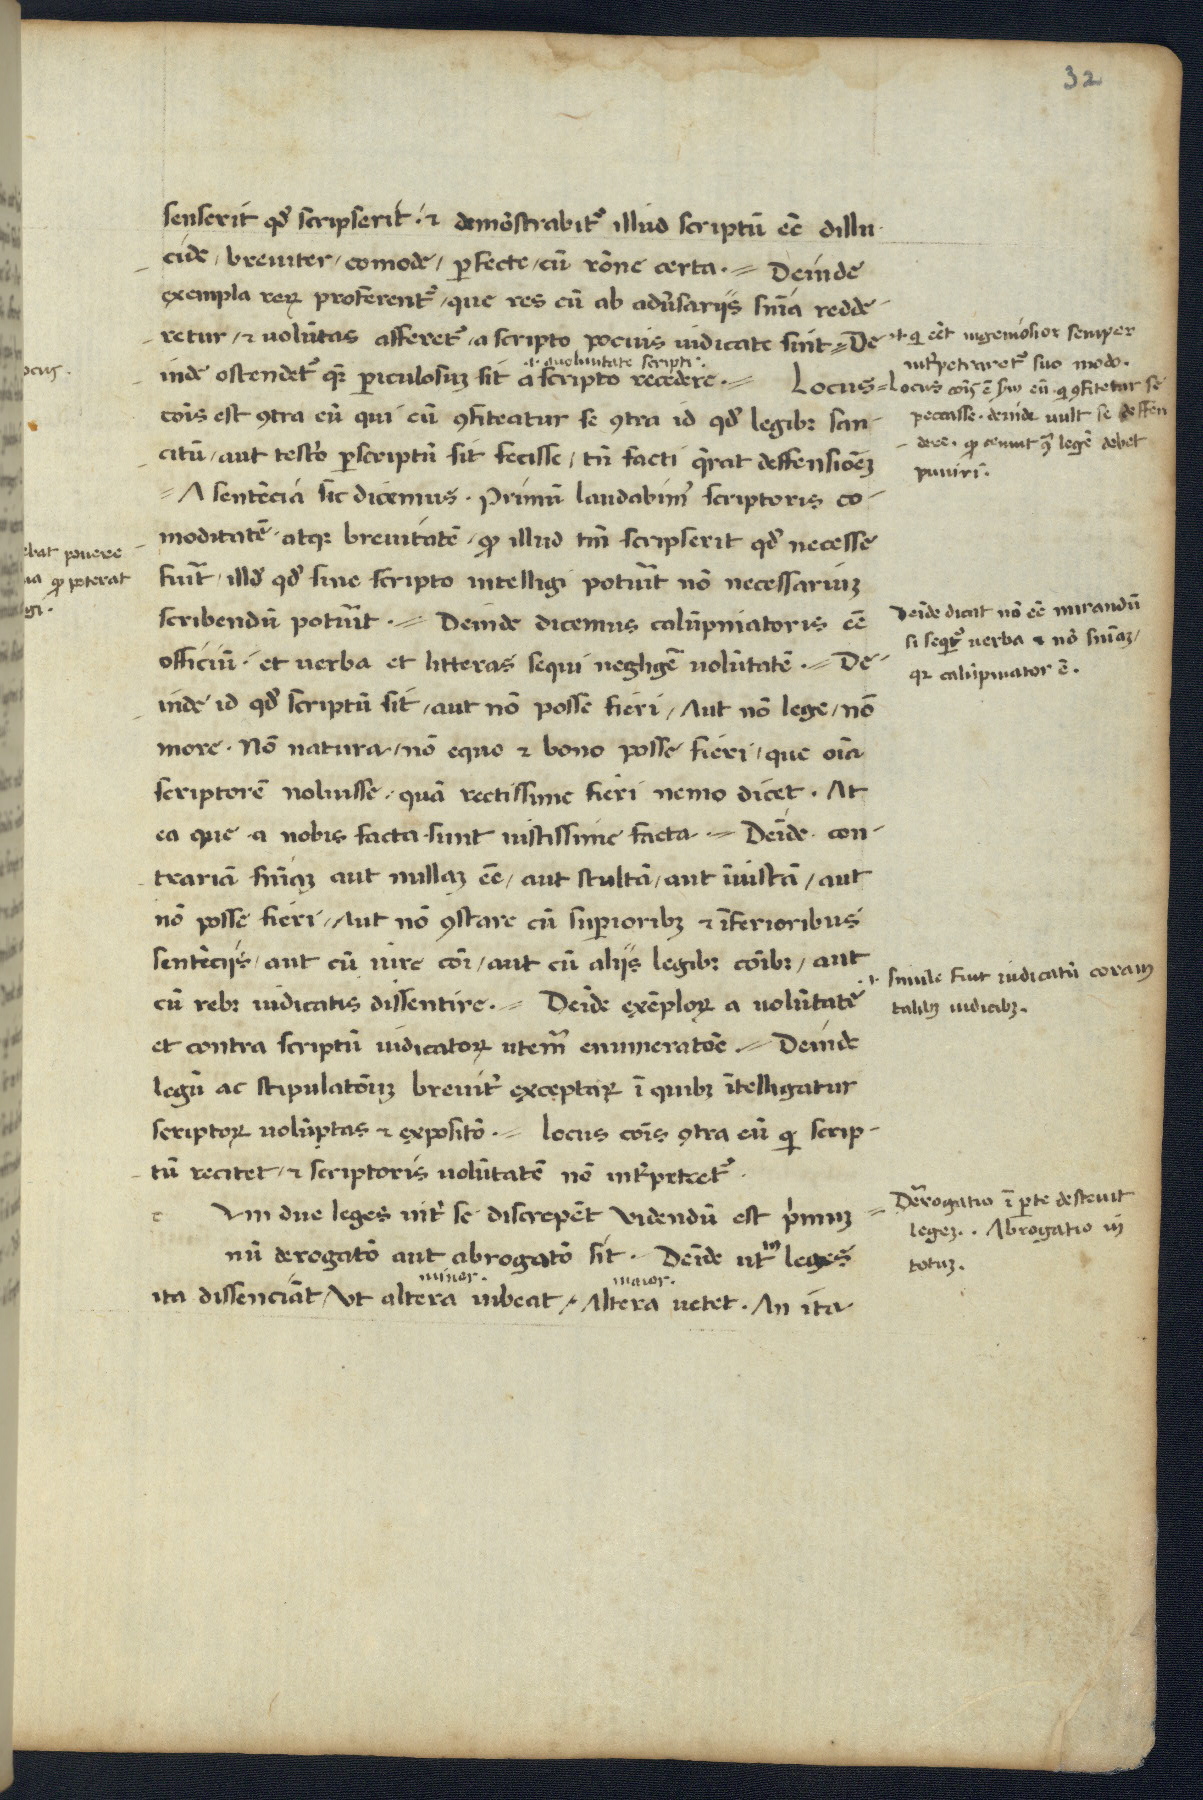 32
senserit qd̄ scripserit. ⁊ demōstrabit᷑ illud scriptū eē dillu-
cide / breuiter / comode / ꝑfecte / cū rōne certa. Deinde
exempla reꝝ proferent᷑ / que res cū ab adũsarijs snīa redde-
retur / ⁊ uolūtas afferet᷑ / a scripto pocius iudicate sint. De-
.i. a uoluntate scripti.
inde ostendet᷑ qr̄ ꝑiculosuꝫ sit a scripto recedere. Locus
cōis est ꝯtra eū qui cū ꝯfiteatur se ꝯtra id qd̄ legibꝫ san-
citū / aut testō ꝑscriptū sit fecisse / tn̄ facti q̄rat deffensiōeꝫ
A sentēcia sic dicemus. Primū laudabim᷑ scriptoris co-
moditatē atqꝫ breuitatē / ꝙ illud tm̄ scripserit qd̄ necesse
fuit̄ / illd̄ qd̄ sine scripto intelligi potuit̄ nō necessariuꝫ
scribendū potuit̄. Deinde dicemus calūpniatoris eē
officiū. et uerba et litteras sequi negligē uolūtatē. De-
inde id qd̄ scriptū sit / aut nō posse fieri / Aut nō lege / nō
more. Nō natura / nō equo ⁊ bono posse fieri / que oīa
scriptorē noluisse / quā rectissime fieri nemo dicet. At
ea que a nobis facta sunt iustissime facta. Deīde con-
trariā snīaꝫ aut nullaꝫ eē / aut stultā / aut īiustā / aut
nō posse fieri / Aut nō ꝯstare cū suꝑioribꝫ ⁊ īferioribus
sentēcijs / aut cū iure cōi / aut cū alijs legibꝫ cōibꝫ / aut
cū rebꝫ iudicatis dissentire. Deīde exēploꝝ a uolūtate
et contra scriptū iudicatoꝝ utem̄ enumeratōe. Deinde
legū ac stipulatōuꝫ breuit̄ exceptaꝝ ī quibꝫ ītelligatur
scriptoꝝ uolūptas ⁊ expositō. Locus cōis ꝯtra eū qi scrip-
tū recitet / ⁊ scriptoris uolūtatē nō int̄pretet᷑.
c Vm due leges int̄ se discrepēt Videndū est pͥmuꝫ
nū derogatō aut abrogatō sit. Deīde utm̄ leges
minor. maior.
ita dissenciāt / Vt altera iubeat / Altera uetet. An ita
qi eēt ingeniosior semper
int̄petraret᷑ suo modo.
Locus cōis ē sw eū qi ꝯfitetur se
peccasse. deinde uult se deffen
dere. ꝙ ꝯ legē debet
puniri.
Deīde dicat nō eē mirandū
si seqit᷑ uerba ⁊ nō snīaꝫ /
qꝛ calūpniator ē.
simile fuit iudicatū coram
talibꝫ iudicibꝫ.
Derogatio ī ꝑte destruit
legeꝫ. Abrogatio in
totuꝫ.
ocus.
ebat ponere
ia ꝙ poterat
gi.